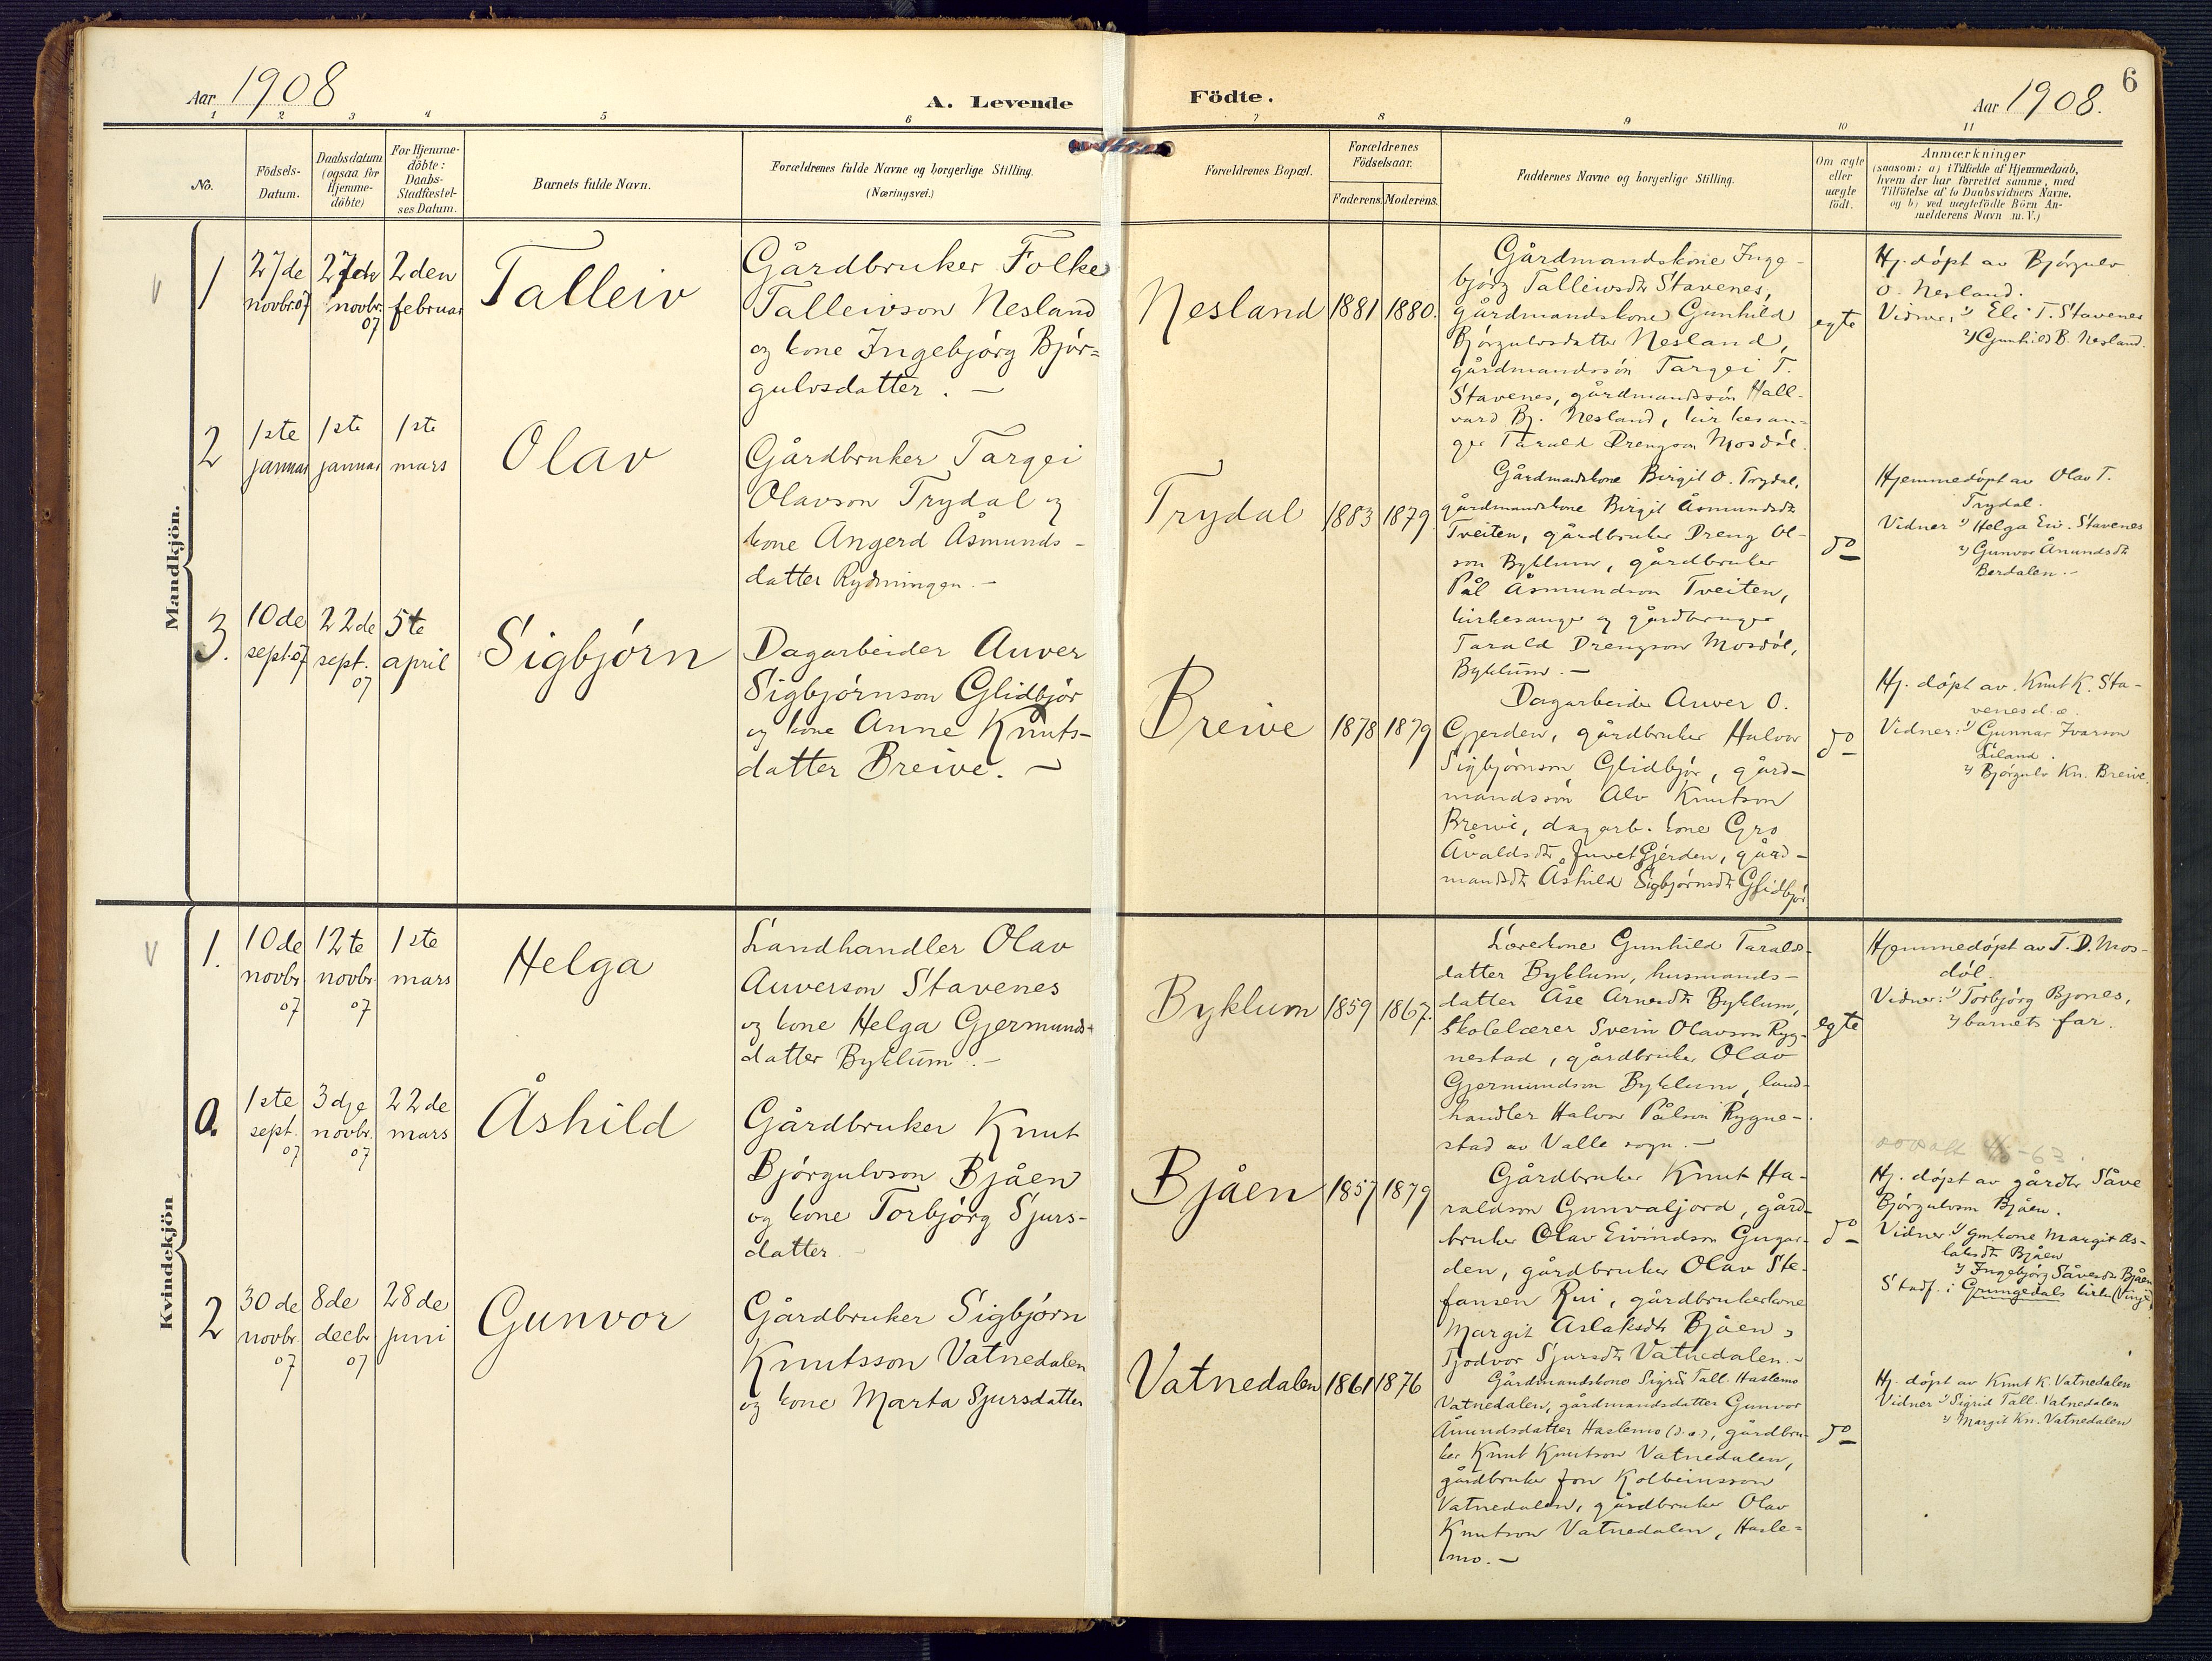 Aar 1908
A. Levende
Födte.
Aar 1908.
6
1
2
3
4
5
6
7
8
9
10
11
No.
Födsels-
Datum.
Daabsdatum
(ogsaa for
Hjemme-
döbte)
For Hjemme-
döbte:
Daabs-
Stadfæstel-
ses Datum.
Barnets fulde Navn.
Forældrenes fulde Navne og borgerlige Stilling.
(Næringsvei.)
Forældrenes Bopæl.
Forældrenes
Födselsaar.
Faderens.
Moderens.
Faddernes Navne og borgerlige Stilling.
Om ægte
eller
uægte
födt.
Anmærkninger
(saasom: a) i Tilfælde af Hjemmedaab,
hvem der har forrettet samme, med
Tilföielse af to Daabsvidners Navne.
og b) ved uegtefödte Börn An-
melderens Navn m. V.)
Mandkjön.
1
27de
novbr. 07
27de
novbr.
07
2den
februar
Talleiv
Gårdbruker Folke
Talleivson Nesland
og kone Ingebjörg Björ-
gulvsdatter. —
Nesland
1881
1880.
Gårdmandskone Inge-
björg Talleivsdtr Stavenes,
gårdmandskone Gunhild
Björgulvsdatter Nesland,
gårdmandssön Targei T.
Stavenes, gårdmandssön Hall-
vard Bj. Nesland, kirkesan-
ger Tarald Drengson Mosdöl.
egte
Hj. döpt av Björgulv
O. Nesland.
Vidner: 1) Eli T. Stavenes
2) Gunhild B. Nesland.
2
1ste
januar
1ste
januar
1ste
mars
Olav
Gårdbruker Targei
Olavson Trydal og
kone Angerd Åsmunds-
datter Rydningen. —
Trydal
1883
1879.
Gårdmandskone Birgit O. Trydal,
gårdmandskone Birgit Åsmundsdtr
Tveiten, gårdbruker Dreng Ol-
son Byklum, gårdbruker
Pål Åsmundson Tveiten,
kirkesanger og gårdbruger
Tarald Drengson Mosdöl,
Byklum. —
do
Hjemmedöpt av Olav T.
Trydal.
Vidner 1) Helga Eiv. Stavenes
2) Gunvor Ånundsdtr
Berdalen. —
3.
10de
sept. 07
22de
sept.
07
5te
april
Sigbjörn
Dagarbeider Auver
Sigbjörnson Glidbjör
og kone Anne Knuts-
datter Breive. —
Breive
1878
1879
Dagarbeider Auver O.
Gjerden, gårdbruker Halvor
Sigbjörnson Glidbjör, gård-
mandssön Alv Knutson
Breive, dagarb. kone Gro
Åvaldsdtr Juvet Gjerden, gård-
mandsdtr Åshild Sigbjörnsdtr Glidbjör
do
Hj. döpt av Knut K. Sta-
venes d. æ.
Vidner: 1) Gunnar Ivarson
Liland.
2) Björgulv Kn. Breive.
Kvindekjön
1.
10de
novbr.
07
12te
novbr.
07
1ste
mars
Helga
Landhandler Olav
Auverson Stavenes
og kone Helga Gjermunds-
datter Byklum. —
Byklum
1859
1867.
Lærekone Gunhild Taralds-
datter Byklum, husmands-
datter Åse Arnesdtr Byklum,
skolelærer Svein Olavson Ryg-
nestad, gårdbruker Olav
Gjermundson Byklum, land-
handler Halvor Pålson Rygne-
stad av Valle sogn. —
egte
Hjemmedöpt av T. D. Mos-
döl.
Vidner: 1) Torbjörg Bjones,
2) barnets far.
0.
1ste
sept.
07
3dje
novbr.
07
22de
mars
Åshild
Gårdbruker Knut
Björgulvson Bjåen
og kone Torbjörg Sjurs-
datter —
Bjåen
1857
1879
Gårdbruker Knut Ha-
raldson Gunvaljord, gård-
bruker Olav Eivindson Gugar-
den, gårdbruker Olav Ste-
fansen Rui, gårdbrukerkone
Margit Aslaksdtr Bjåen,
Tjodvor Sjursdtr Vatnedalen. —
do
Hj. döpt av gårdbr Såve
Björgulvson Bjåen.
Vidner 1) gmkone Margit As-
laksdtr Bjåen
2) Ingebjörg Såvesdtr Bjåen
Stadf. i Grungedals kirke (Vinje)
2
30de
novbr.
07
8de
decbr
07
28de
juni
Gunvor
Gårdbruker Sigbjörn
Knutsson Vatnedalen
og kone Marta Sjursdatter
Vatnedalen
1861
1876
Gårdmandskone Sigrid Tall. Haslemo
Vatnedalen, gårdmandsdatter Gunvor
Åmundsdatter Haslemo (d. æ.), gårdbru-
ker Knut Knutson Vatnedalen,
gårdbruker Jon Kolbeinsson
Vatnedalen, gårdbruker Olav
Knutson Vatnedalen, Hasle-
mo. —
do
Hj. döpt av Knut K. Vatnedalen
Vidner 1) Sigrid Tall. Vatnedalen
2) Margit Kn. Vatnedalen